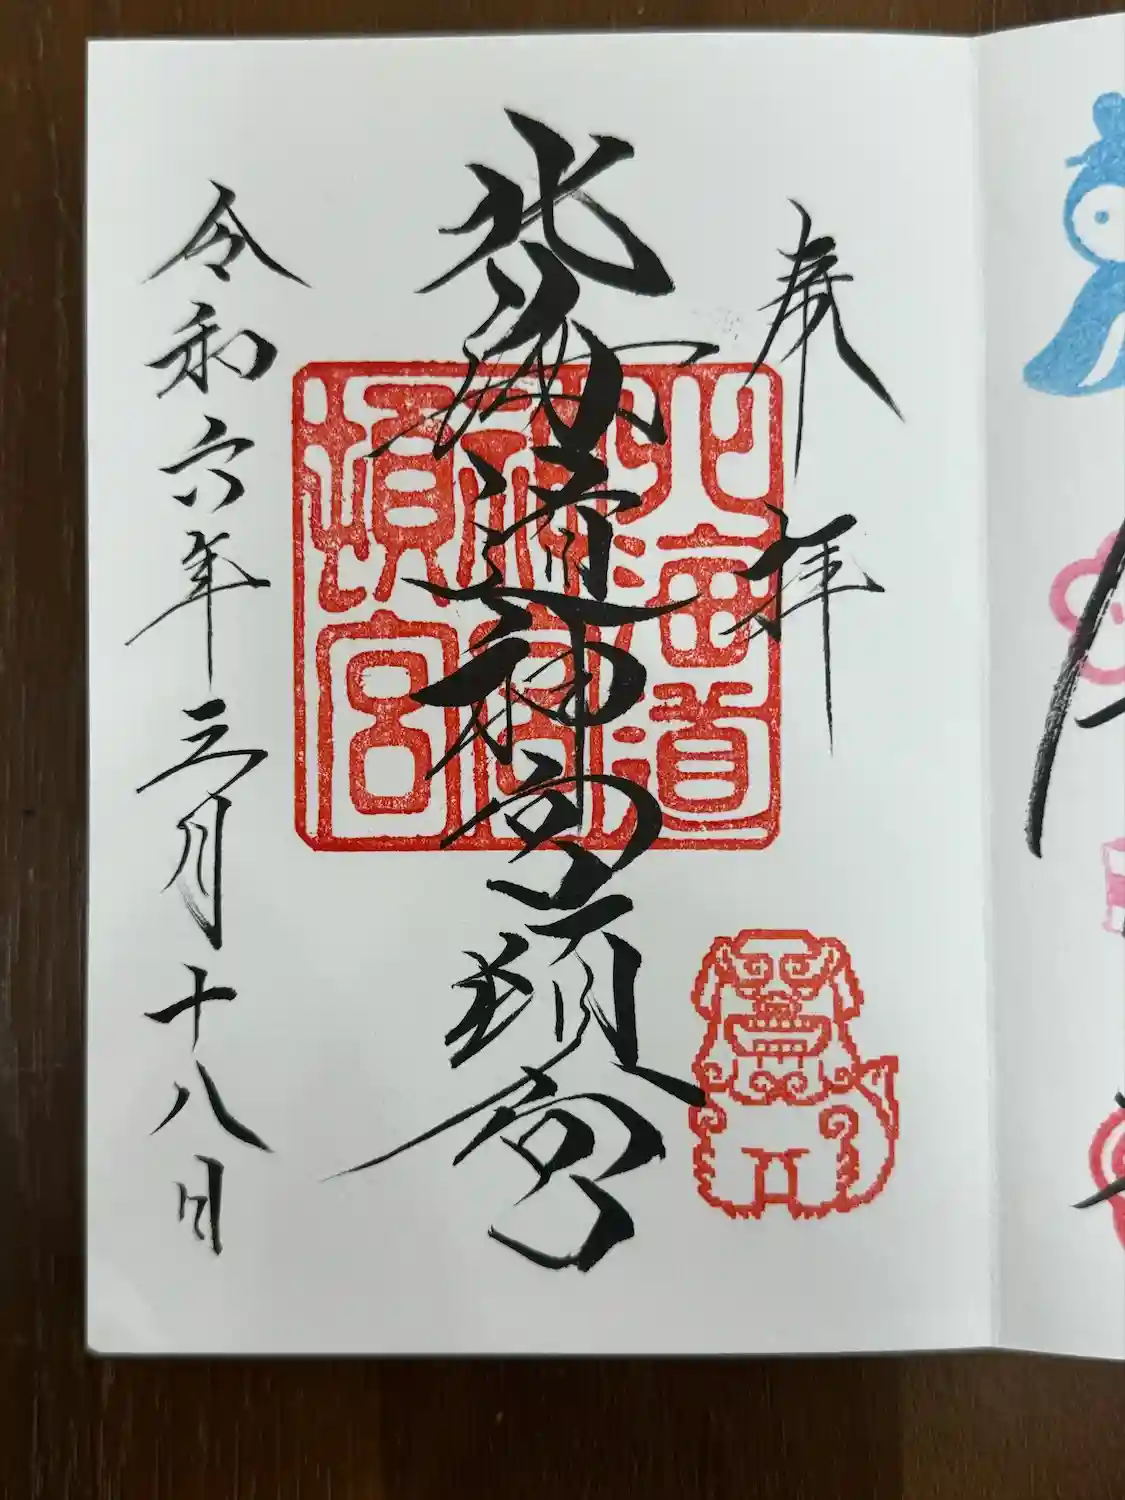 奉拝
北海道神宮頓宮
北海道
神宮
頓宮
令和六年三月十八日